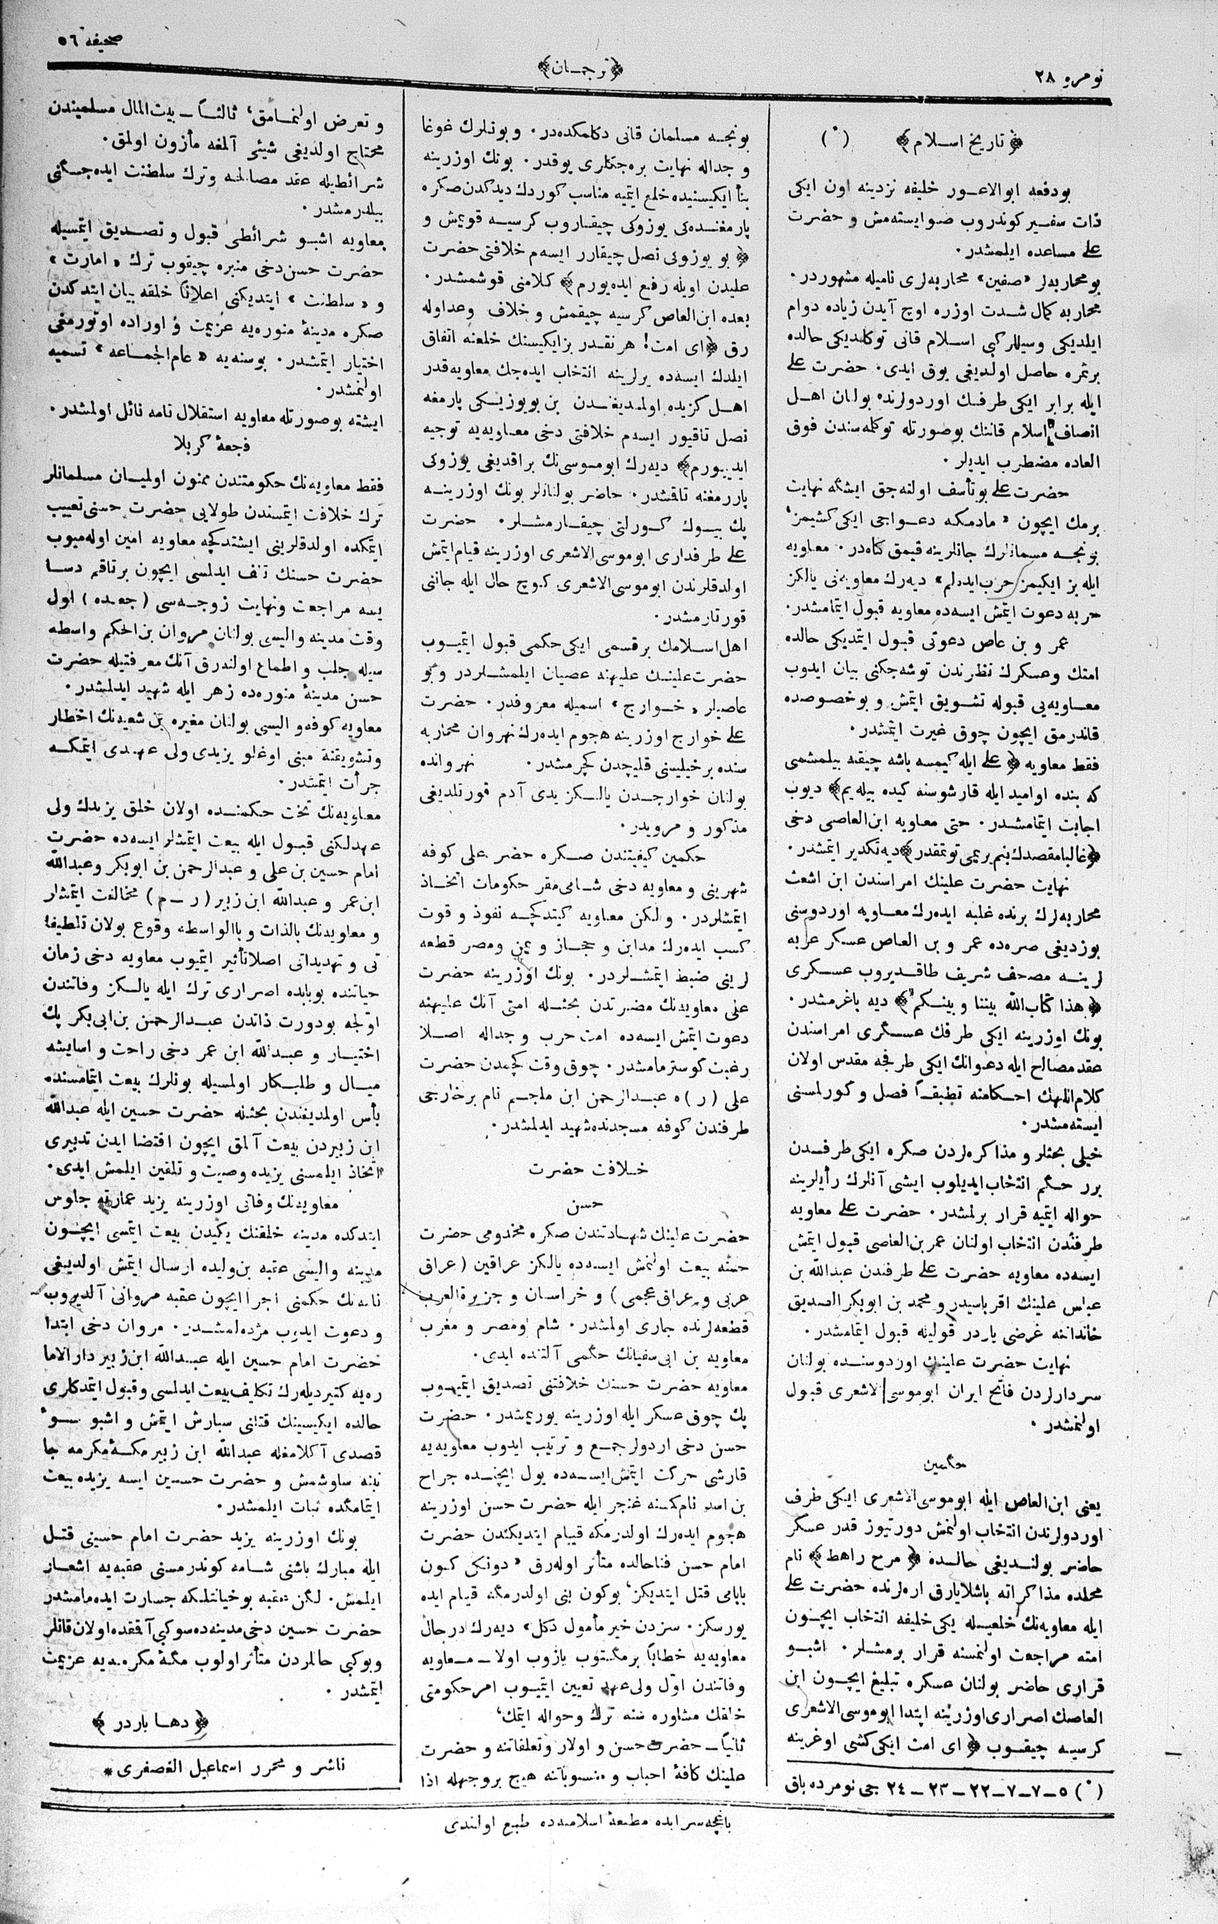 نومرو ٢٨
﴿ترجمان﴾
صحيفه ٥٦
﴿تاريخ اسلام﴾ (*)
بودفعه ابوالاعور خليفه نزدينه اون ايكى
ذات سفير كوندروب صو ايستهمش و حضرت
على مساعده ايلمشدر.
بو محاربهلر «صفين» محاربهلرى ناميله مشهوردر.
محاربه كمال شدت اوزره اوچ آيدن زياده دوام
ايلديكى وسيللر كبى اسلام قانى توكلديكى حالده
برثمره حاصل اولديغى يوق ايدى. حضرت على
ايله برابر ايكى طرفك اوردولرنده بولنان اهل
انصاف اسلام قاننك بوصورتله توكلمهسندن فوق
العاده مضطرب ايديلر.
حضرت على بو تأسف اولنهجق ايشكه نهايت
برمك ايچون «مادمكه دعواجى ايكى كشيمز،
بونجه مسلمانلرك جانلرينه قيمق كناهدر. معاويه
ايله بز ايكيمز حرب ايدهلم» ديهرك معاويهنى يالكز
حربه دعوت ايتمش ايسهده معاويه قبول ايتمامشدر.
عمر و بن عاص دعوتى قبول ايتمديكى حالده
امتك وعسكرك نظرندن توشهجكنى بيان ايدوب
معاويهيى قبوله تشويق ايتمش و بوخصوصده
قاندرمق ايچون چوق غيرت ايتمشدر.
فقط معاويه ﴿على ايله كيمسه باشه چيقنه بيلمشمى
كه بنده اواميد ايله قارشوسنه كيده بيلهيم﴾ ديوب
اجابت ايتمامشدر. حتى معاويه ابن العاصى دخى
﴿غالبا مقصدك بنم يريمى توتمقدر﴾ ديه تكدير ايتمشدر.
نهايت حضرت علينك امراسندن ابن اشعث
محاربهلرك برنده غلبه ايدهرك معاويه اوردوسنى
بوزديغى صرهده عمر و بن العاص عسكر عربه
لرينه مصحف شريف طاقديروب عسكرى
﴿هذا كتاب الله بيننا و بينكم﴾ ديه باغرمشدر.
بونك اوزرينه ايكى طرفك عسكرى امراسندن
عقد مصالح ايله دعوانك ايكى طرفجه مقدس اولان
كلام اللهك احكامنه تطبيقاً فصل و كورلمسنى
ايستهمشدر.
خيلى بحثلر و مذاكرهلردن صكره ايكى طرفدن
برر حكم انتخاب ايديلوب ايشى آنلرك رأيلرينه
حواله ايتميه قرار برلمشدر. حضرت على معاويه
طرفندن انتخاب اولنان عمر بن العاصى قبول ايتمش
ايسهده معاويه حضرت على طرفندن عبدالله بن
عباس علينك اقرباسيدر و محمد بن ابوبكر الصديق
خانداننه غرضى باردر قوليله قبول ايتمامشدر.
نهايت حضرت علينك اوردوسنده بولنان
سردارلردن فاتح ايران ابوموسى الاشعرى قبول
اولنمشدر.
حكمين
يعنى ابن العاص ايله ابوموسى الاشعرى ايكى طرف
اوردولرندن انتخاب اولنمش دورتيوز قدر عسكر
حاضر بولنديغى حالده ﴿مرج راهط﴾ نام
محلده مذاكراته باشلايارق ارهلرنده حضرت على
ايله معاويهنك خلعيله يكى خليفه انتخاب ايچون
امته مراجعت اولنمسنه قرار برمشلر. اشبو
قرارى حاضر بولنان عسكره تبليغ ايچون ابن
العاصك اصرارى اوزرينه ابتدا ابوموسى الاشعرى
كرسيه چيقوب ﴿اى امت ايكى كشى اوغرينه
(*) ٥ــ٧ــ٧ــ٢٢ــ٢٣ــ٢٤ جى نومرده باق
بونجه مسلمان قانى دكلمكدهدر. و بونلرك غوغا
و جداله نهايت برهجكلرى يوقدر. بونك اوزرينه
بنأ ايكيسنيده خلع ايتميه مناسب كوردك ديدكدن صكره
پارمغندهكى يوزوكى چيقاروب كرسيه قويمش و
﴿بو يوزوكى نصل چيقارر ايسهم خلافتى حضرت
عليدن اويله رفع ايدهيورم﴾ كلامنى قوشمشدر.
بعده ابن العاص كرسيه چيقمش و خلاف وعداوله
رق ﴿اى امت! هر نقدر بز ايكيسنك خلعنه اتفاق
ايلدك ايسهده يرلرينه انتخاب ايدهجك معاويهقدر
اهل كزيده اولمديغندن بن بو يوزيكى پارمغه
نصل تاقيور ايسهم خلافتى دخى معاويهيه توجيه
ايدييورم﴾ ديهرك ابوموسىنك براقديغى يوزوكى
پاررمغنه تاقمشدر. حاضر بولنانلر بونك اوزرينه
پك بيوك كورلتى چيقارمشلر. حضرت
على طرفدارى ابوموسى الاشعرى اوزرينه قيام ايتمش
اولدقلرندن ابوموسى الاشعرى كوچ حال ايله جاننى
قورتارمشدر.
اهل اسلامك برقسمى ايكى حكمى قبول ايتميوب
حضرت علينك عليهنه عصيان ايلمشلردر و بو
عاصيلر «خوارج» اسميله معروفدر. حضرت
على خوارج اوزرينه هجوم ايدهرك نهروان محاربه
سنده برخيليسنى قليچدن كچرمشدر. نهروانده
بولنان خوارجدن يالكز يدى آدم قورتلديغى
مذكور و مرويدر.
حكمين كيفيتندن صكره حضر على كوفه
شهرينى و معاويه دخى شامى مقر حكومات اتخاذ
ايتمشلردر. و لكن معاويه كيتدكچه نفوذ و قوت
كسب ايدهرك مداين و حجاز و يمن ومصر قطعه
لرينى ضبط ايتمشلردر. بونك اوزرينه حضرت
على معاويهنك مضرتندن بحثله امتى آنك عليهنه
دعوت ايتمش ايسهده امت حرب و جداله اصلا
رغبت كوسترمامشدر. چوق وقت كچمدن حضرت
على (ر)ه عبدالرحمن ابن ملجم نام برخارجى
طرفندن كوفه مسجدنده شهيد ايدلمشدر.
خلافت حضرت
حسن
حضرت علينك شهادتندن صكره مخدومى حضرت
حسنه بيعت اولنمش ايسهده يالكز عراقين (عراق
عربى و عراق عجمى) و خراسان و جزيرةالعرب
قطعهلرنده جارى اولمشدر. شام ومصر و مغرب
معاويه بن ابى سفيانك حكمى آلتنده ايدى.
معاويه حضرت حسنك خلافتنى تصديق ايتميوب
پك چوق عسكر ايله اوزرينه يوريمشدر. حضرت
حسن دخى اردولر جمع و ترتيب ايدوب معاويهيه
قارشى حركت ايتمش ايسهده يول ايچنده جراح
بن اسد نام كمسنه خنجر ايله حضرت حسن اوزرينه
هجوم ايدهرك اولدرمكه قيام ايتديكندن حضرت
امام حسن فنا حالده متأثر اولهرق «دونكى كون
بابامى قتل ايتديكز، بوكون بنى اولدرمكه قيام ايده
يورسكز. سزدن خير مأمول دكل» ديهرك درحال
معاويهيه خطاباً برمكتوب يازوب اولا ــ معاويه
وفاتندن اول ولى عهد تعيين ايتميوب امر حكومتى
خلقك مشاورهسنه ترك وحواله ايتمك،
ثانياً ــ حضرت حسن و اولاد وتعلقاتنه و حضرت
علينك كافهٔ احباب و منسوباتنه هيچ بروجهله اذا
و تعرض اولنمامق، ثالثاً ــ بيت المال مسلميندن
محتاج اولديغى شيئى آلمغه مأزون اولمق.
شرائطيله عقد مصالحه وترك سلطنت ايدهجكنى
بيلدرمشدر.
معاويه اشبو شرائطى قبول و تصديق ايتمسيله
حضرت حسن دخى منبره چيقوب ترك «امارت»
و «سلطنت» ايتديكنى اعلاناً خلقه بيان ايتدكدن
صكره مدينهٔ منورهيه عزيمت و اوراده اوتورمغى
اختيار ايتمشدر. بوسنهيه «عام الجماعه» تسميه
اولنمشدر.
ايشته بوصورتله معاويه استقلال نامه نائل اولمشدر.
فجعهٔ كربلا
فقط معاويهنك حكومتندن ممنون اولميان مسلمانلر
ترك خلافت ايتمسندن طولايى حضرت حسنى تعييب
ايتمكده اولدقلرينى ايشتدكچه معاويه امين اولهميوب
حضرت حسنك تلف ايدلمسى ايچون برتاقم دسا
يسه مراجعت ونهايت زوجهسى (جعده) اول
وقت مدينه واليسى بولنان مروان بن الحكم واسطه
سيله جلب و اطماع اولندرق آنك معرفتيله حضرت
حسن مدينهٔ منورهده زهر ايله شهيد ايدلمشدر.
معاويه كوفه و اليسى بولنان مغيره بن شعبهنك اخطار
وتشويقنه مبنى اوغلو يزيدى ولى عهدى ايتمكه
جرأت ايتمشدر.
معاويهنك تحت حكمنده اولان خلق يزيدك ولى
عهدلكنى قبول ايله بيعت ايتمشلر ايسهده حضرت
امام حسين بن على و عبدالرحمن بن ابوبكر وعبدالله
ابن عمر و عبدالله ابن زبير (ر ــ م) مخالفت ايتمشلر
و معاويهنك بالذات و بالواسطه وقوع بولان تلطيفا
تى و تهديداتى اصلا تأثير ايتميوب معاويه دخى زمان
حياتنده بوبابده اصرارى ترك ايله يالكز وفاتندن
اولجه بودورت ذاتدن عبدالرحمن بن ابى بكر پك
اختيار و عبدالله ابن عمر دخى راحت و اسايشه
ميال و طلبكار اولمسيله بونلرك بيعت ايتمامسنده
بأس اولمديغندن بحثله حضرت حسين ايله عبدالله
ابن زبيردن بيعت آلمق ايچون اقتضا ايدن تدبيرى
اتخاذ ايلمسنى يزيده وصيت و تلقين ايلمش ايدى.
معاويهنك وفاتى اوزرينه يزيد جلوس
ايتدكده مدينه خلقنك يكيدن بيعت ايتمسى ايچون
مدينه واليسى عقبه بن وليده ارسال ايتمش اولديغى
نامهنك حكمنى اجرا ايچون عقبه مروانى آلديروب
و دعوت ايدوب مژدهلمشدر. مروان دخى ابتدا
حضرت امام حسين ايله عبدالله ابن زبير دار الاما
رهيه كتيرديلهرك تكاليف بيعت ايدلمسى وقبول ايتمدكلرى
حالده ايكيسينك قتلنى سپارش ايتمش و اشبو سوء
قصدى آكلامغله عبدالله ابن زبير مكهٔ مكرمه جا
نبنه ساوشمش و حضرت حسين ايسه يزيده بيعت
ايتمامكده ثبات ايلمشدر.
بونك اوزرينه يزيد حضرت امام حسينى قتل
ايله مبارك باشنى شامه كوندرمسنى عقبهيه اشعار
ايلمش. لكن عقبه بو خيانتلكه جسارت ايدهمامشدر
حضرت حسين دخى مدينهده سوكبى آقنقده اولان قانلر
وبوكبى حاللردن متأثر اولوب مكهٔ مكرمهيه عزيمت
ايتمشدر.
﴿دها باردر﴾
ناشر و محرر اسماعيل الغصفرى*
باغچهسرايده مطبعهٔ اسلاميهده طبع اولندى